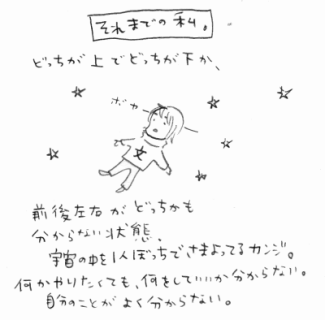 それまでの私。
どっちが上でどっちが下か、
ポカーン
前後左右がどっちかも
分からない状態。
宇宙の中を1人ぼっちでさまよってるカンジ。
何かやりたくても、何をしていいか分からない。
自分のことがよく分からない。